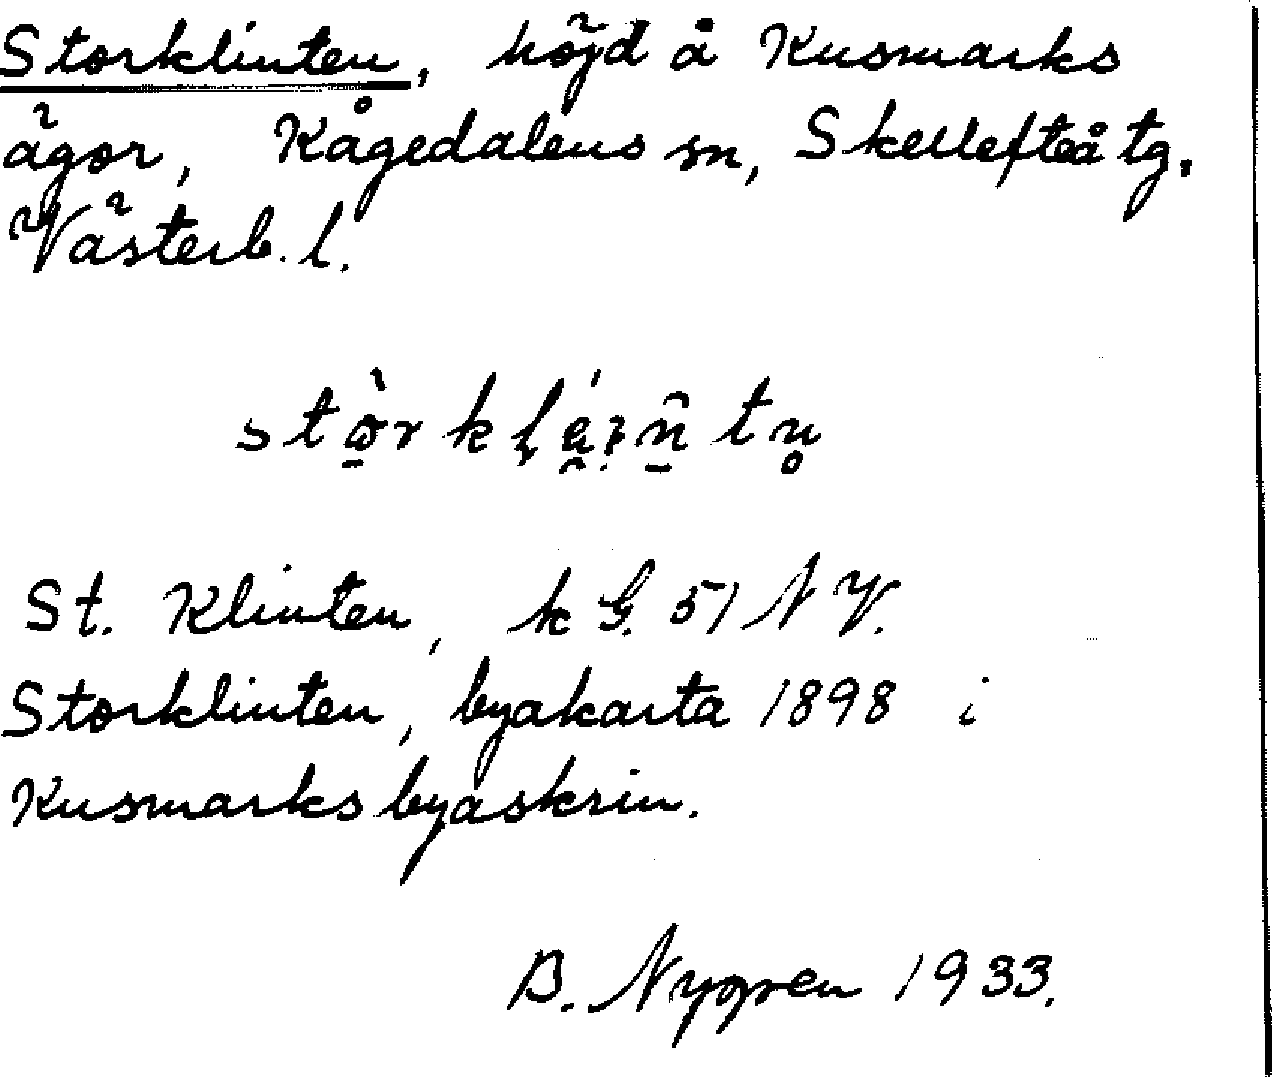 Storklinten, höjd å Kusmarks
ägor, Kågedalens sn, Skellefteå tg.
Västerb. l.
St. Klinten, k G. 51 N V.
Storklinten, byakarta 1898 i
Kusmarks byaskrin.
B. Nygren 1933.